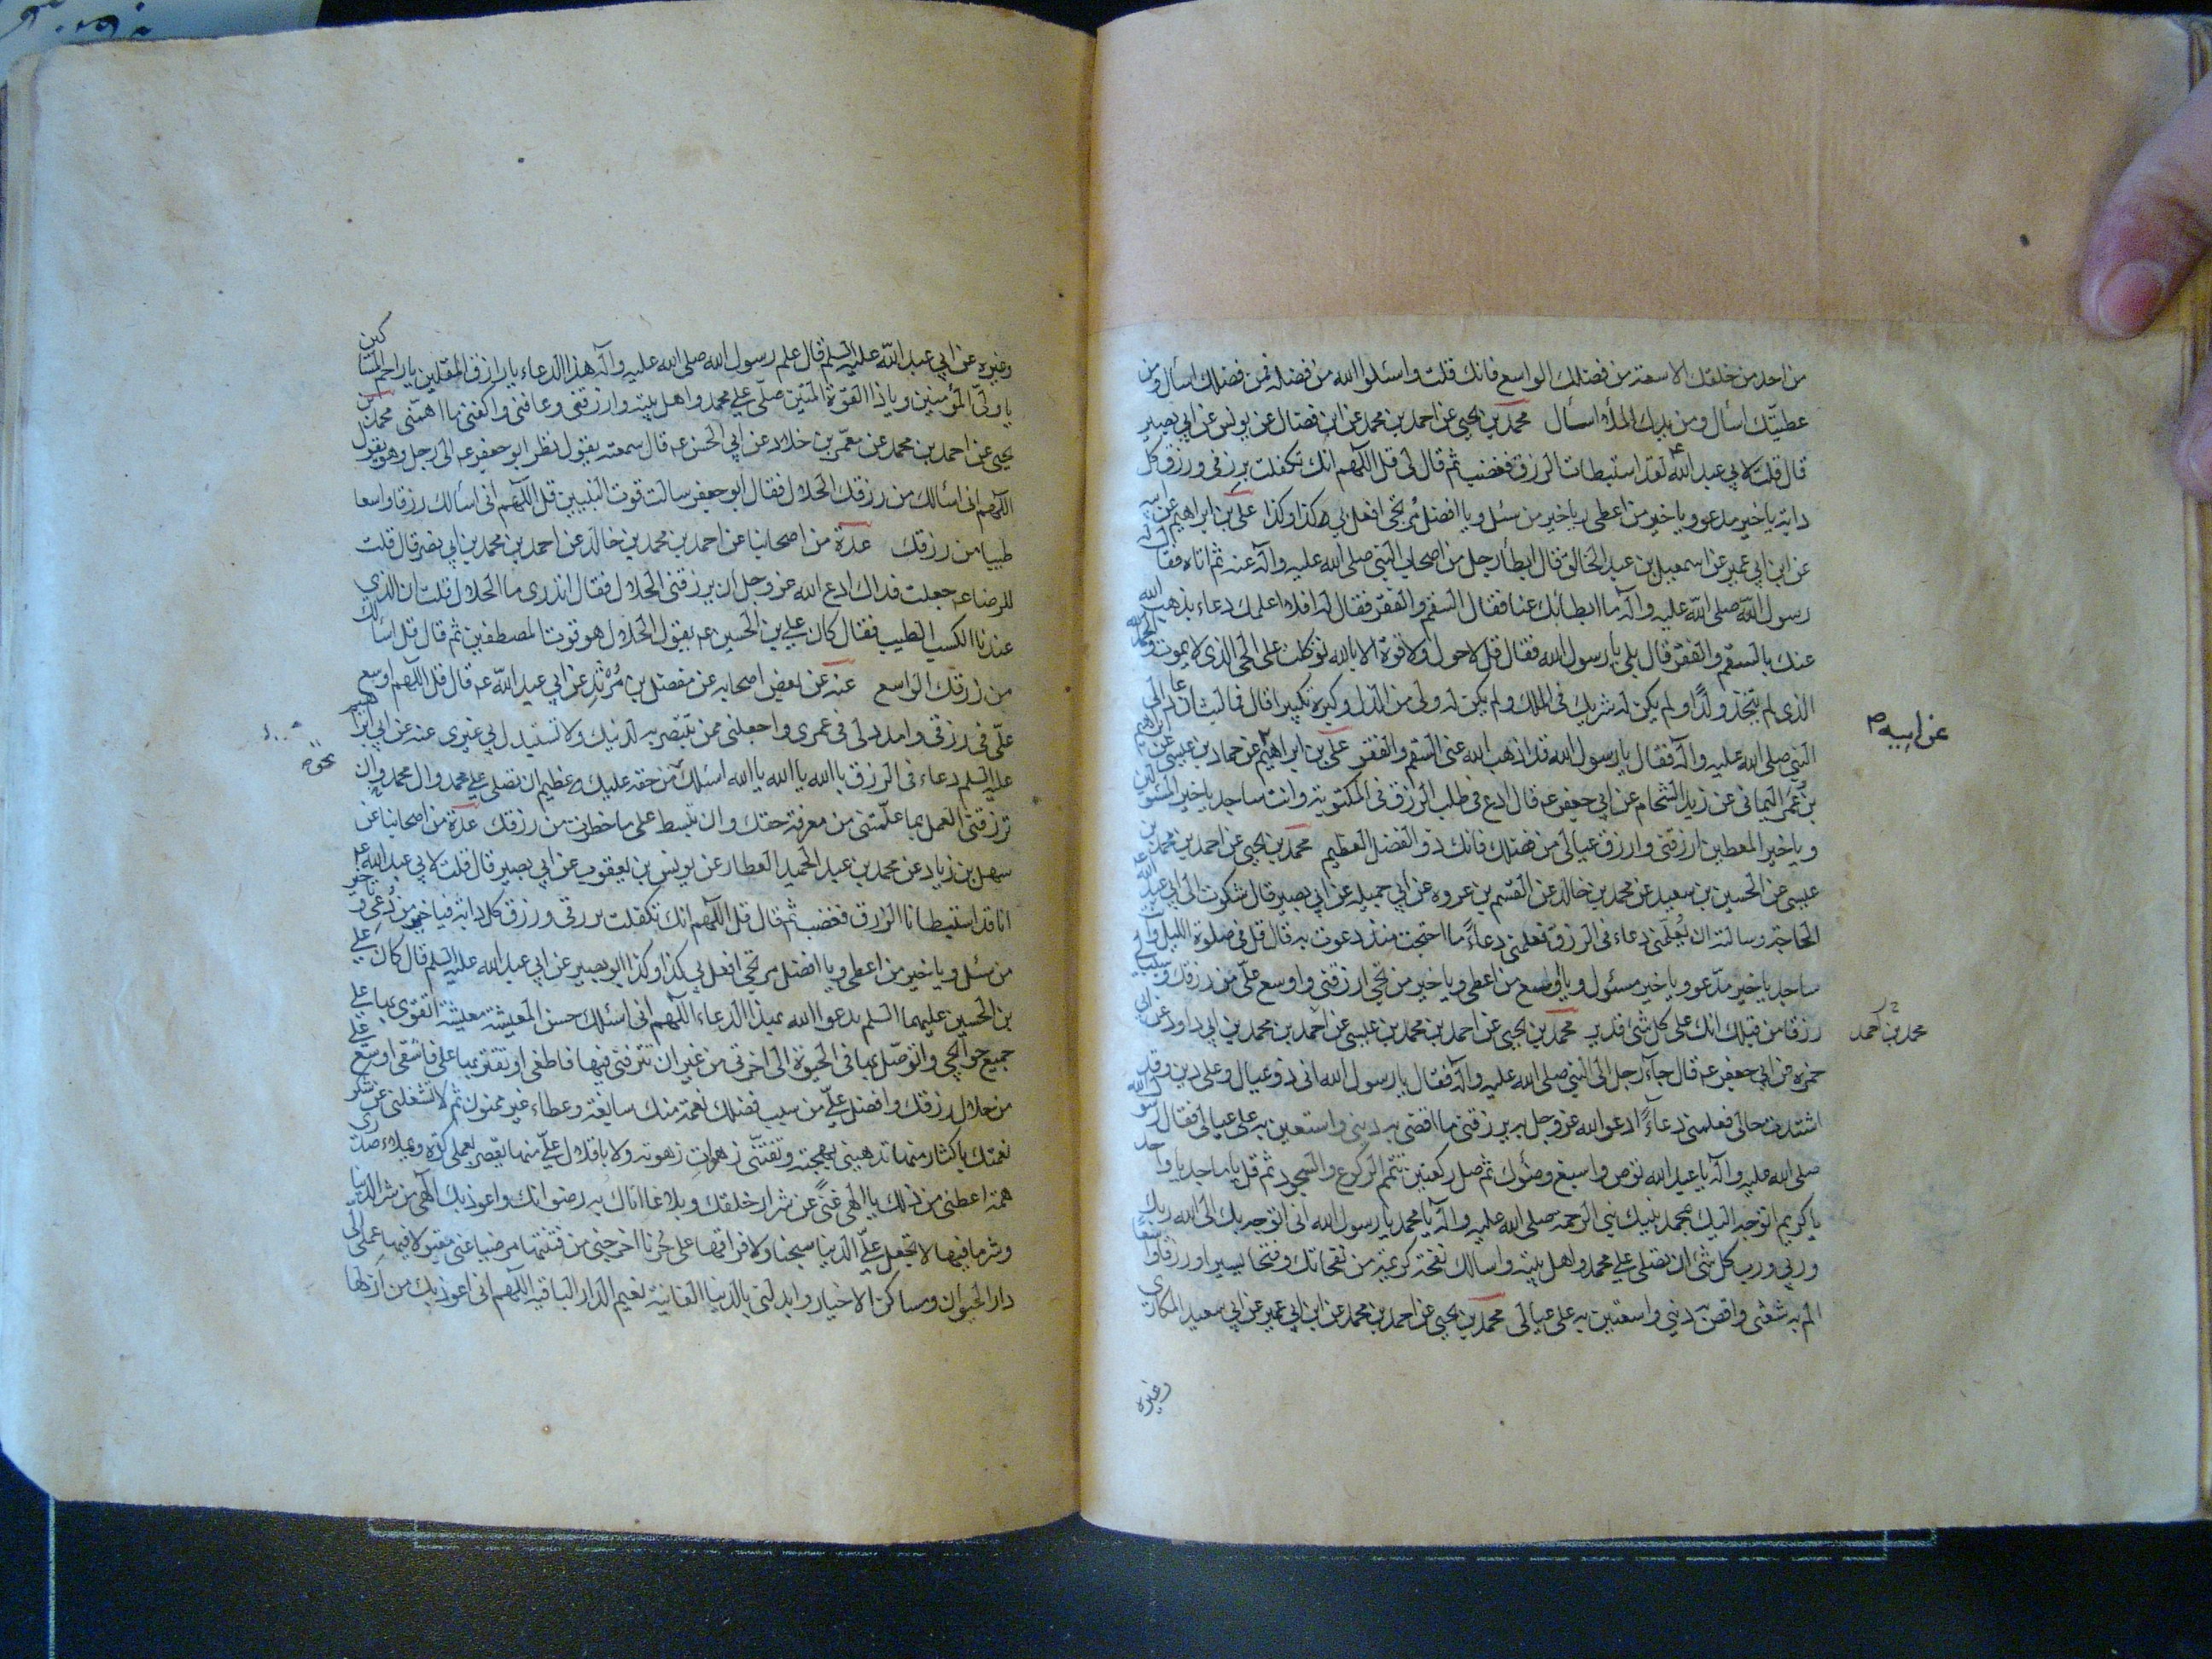 من احد من خلقك الا سعة من فضلك الواسع فانك قلت واسئلوا الله من فضله فمن فضلك اسأل ومن
عطيّتك اسأل ومن يدك الملأ اسأل محمد بن يحيى عن احمد بن محمد عن ابن فضال عن يونس عن ابي بصير
قال قلت لابي عبد الله ع لقد استبطات الرزق فغضب ثم قال لى قل اللهم انك تكفلت برزقى ورزق كل
دابة يا خير مدعو ويا خير من اعطى يا خير من سئل ويا افضل مرتجى افعل بي كذا وكذا على بن ابراهيم عن ابيه
عن ابن ابي عمير عن اسمعيل بن عبد الخالق قال ابطأ رجل من اصحاب النبى صلى الله عليه وآله عنه ثم اتاه فقال له
رسول الله صلى الله عليه وآله ما ابطأ بك عنا فقال السقم والفقر فقال له افلا اعلمك دعاء يذهب الله
عنك بالسقم والفقر قال بلى يا رسول الله فقال قل لا حول ولا قوة الا بالله توكلت على الحى الذى لا يموت والحمد لله
الذى لم يتخذ ولدًا ولم يكن له شريك فى الملك ولم يكن له ولى من الذل وكبره تكبيرا قال فما لبث ان عاد الى
النبى صلى الله عليه وآله فقال يا رسول الله قد اذهب الله عنى السقم والفقر على بن ابراهيم عن حماد بن عيسى عن ابراهيم
عن ابيه ص
بن عمر اليمانى عن زيد الشحام عن ابي جعفر ع قال ادع فى طلب الرزق فى المكتوبة وانت ساجد يا خير المسئولين
ويا خير المعطين ارزقنى وارزق عيالى من فضلك فانك ذو الفضل العظيم محمد بن يحيى عن احمد بن محمد بن
عيسى عن الحسين بن سعيد عن محمد بن خالد عن القسم بن عروه عن ابي جميله عن ابي بصير قال شكوت الى ابي عبد الله ع
الحاجة وسالته ان يُعلّمنى دعاء فى الرزق فعلمنى دعاءً ما احتجت منذ دعوت به قال قل فى صلوة الليل وانت
ساجد يا خير مدّعو ويا خير مسئول ويا اوسع من اعطى ويا خير مرتجى ارزقنى واوسع علىّ من رزقك وسبب لى
رزقا من قبلك انك على كل شئ قدير محمد بن يحيى عن احمد بن محمد بن عيسى عن احمد بن محمد بن ابي داود عن ابي
محمد بن احمد
حمزه عن ابي جعفر ع قال جاء رجل الى النبى صلى الله عليه وآله فقال يا رسول الله انى ذو عيال وعلى دين وقد
اشتدت حالى فعلمنى دعاءً ادعو الله عز وجل به يرزقنى ما اقضى به دينى واستعين به على عيالى فقال رسول الله
صلى الله عليه وآله يا عبد الله توض واسبغ وضوءك ثم صل ركعتين تتم الركوع والسجود ثم قل يا ماجد يا واحد
يا كريم اتوجه اليك بمحمد نبيك نبى الرحمة صلى الله عليه وآله يا محمد يا رسول الله انى اتوجه بك الى الله ربك
وربى ورب كل شئ ان تصلى على محمد واهل بيته واسالك نفحة كريمة من نفحاتك وفتحا يسيرا ورزقا واسعا
الم به شعثى واقض به دينى واستعين به على عيالى محمد بن يحيى عن احمد بن محمد عن ابن ابي عمير عن ابي سعيد المكارى
وغيره
وغيره عن ابي عبد الله عليه السلم قال علم رسول الله صلى الله عليه وآله هذا الدعاء يا رازق المقلين يا راحم المساكين
يا ولىّ المؤمنين ويا ذا القوّة المتين صلّى على محمد واهل بيته وارزقنى وعافنى واكفنى ما اهمّنى محمد بن
يحيى عن احمد بن محمد عن معمّر بن خلاد عن ابي الحسن ع قال سمعته يقول نظر ابو جعفر ع الى رجل وهو يقول
اللهم انى اسالك من رزقك الحلال فقال ابو جعفر سالت قوت النبيين قل اللهم انى اسالك رزقا واسعا
طيبا من رزقك عدة من اصحابنا عن احمد بن محمد بن خالد عن احمد بن محمد بن ابي نصر قال قلت
للرضا ع جعلت فداك ادع الله عز وجل ان يرزقنى الحلال فقال اتدرى ما الحلال قلت ان الذى
عندنا الكسب الطيب فقال كان على بن الحسين ع يقول الحلال هو قوت المصطفين ثم قال قل اسألك
من رزقك الواسع عنه عن بعض اصحابه عن مفضل بن مزيد عن ابي عبد الله ع قال قل اللهم اوسع
علّى فى رزقى وامدد لى فى عمرى واجعلنى ممن تنتصر به لدينك ولا تستبدل بي غيرى عنه عن ابي ابراهيم
عليه السلم دعاء فى الرزق يا الله يا الله يا الله اسئلك من حقه عليك عظيم ان تصلى على محمد وال محمد وان
ترزقنى العمل بما علّمتنى من معرفة حقك وان تبسط على ما حظرت من رزقك عدة من اصحابنا عن
سهل بن زياد عن محمد بن عبد الحميد العطار عن يونس بن يعقوب عن ابي بصير قال قلت لابي عبد الله ع
انا قد استبطأنا الرزق فغضب ثم قال قل اللهم انك تكفلت برزقى ورزق كل دابة فيا خير من دُعى ويا خير
من سئل ويا خير من اعطى ويا افضل مرتجى افعل بي كذا وكذا ابو بصير عن ابي عبد الله عليه السلم قال كان على
بن الحسين عليهما السلم يدعوا الله بهذا الدعاء اللهم انى اسئلك حسن المعيشة معيشة اتقوى بها على
جميع حوائجى واتوصّل بها فى الحيوة الى اخرتى من غير ان تترفنى فيها فاطغى او تقتر بها على فاشقى اوسع على
من حلال رزقك وافضل علىّ من سيب فضلك نعمة منك سابغة وعطاء غير ممنون ثم لا تشغلنى عن شكر
نعمتك باكثار منها تلهينى بهجته وتفتنّى زهوات زهوته ولا باقلال علىّ منها يقصر بعملى كدّه ويملاء صدرى
همه اعطنى من ذلك يا الهى غنىً عن شرار خلقك وبلاغا انال به رضوانك واعوذ بك الهى من شر الدنيا
وشر ما فيها لا تجعل علىّ الدنيا سجنا ولا فراقها على حُزنا اخرجنى من فتنتها مرضيا عنى مقبولا فيها عملى الى
دار الحيوان ومساكن الاخيار وابدلنى بالدنيا الفانية نعيم الدار الباقية اللهم انى اعوذ بك من ازلها